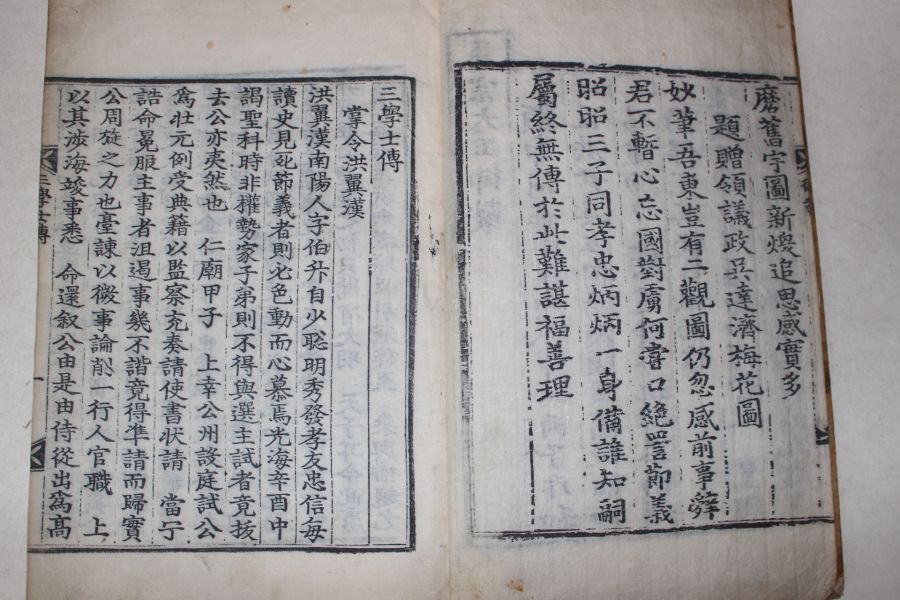 磨舊宇圖新煥追思感實多
題贈領議政吳達濟梅花圖
妙筆吾東豈有二觀圖仍忽感前事辭
君不暫心忘國對虜何嘗口絶詈節義
昭昭三子同孝忠炳炳一身備誰知嗣
屬終無傳於此難諶福善理
三學士傳
掌令洪翼漢
洪翼漢南陽人字伯升自少聰明秀發孝友忠信每
讀史見死節義者則必色動而心慕焉光海辛酉中
謁聖科時非權勢家子弟則不得與選主試者竟拔
去公亦夷然也 仁廟甲子 上幸公州設庭試公
爲壯元例受典籍以監察充奏請使書狀請 當宁
誥命冕服主事者沮遏事幾不諧竟得準請而歸實
公周旋之力也臺諫以微事論削一行人官職 上
以其涉海竣事悉 命還叙公由是由侍從出爲高
三學士傳
一